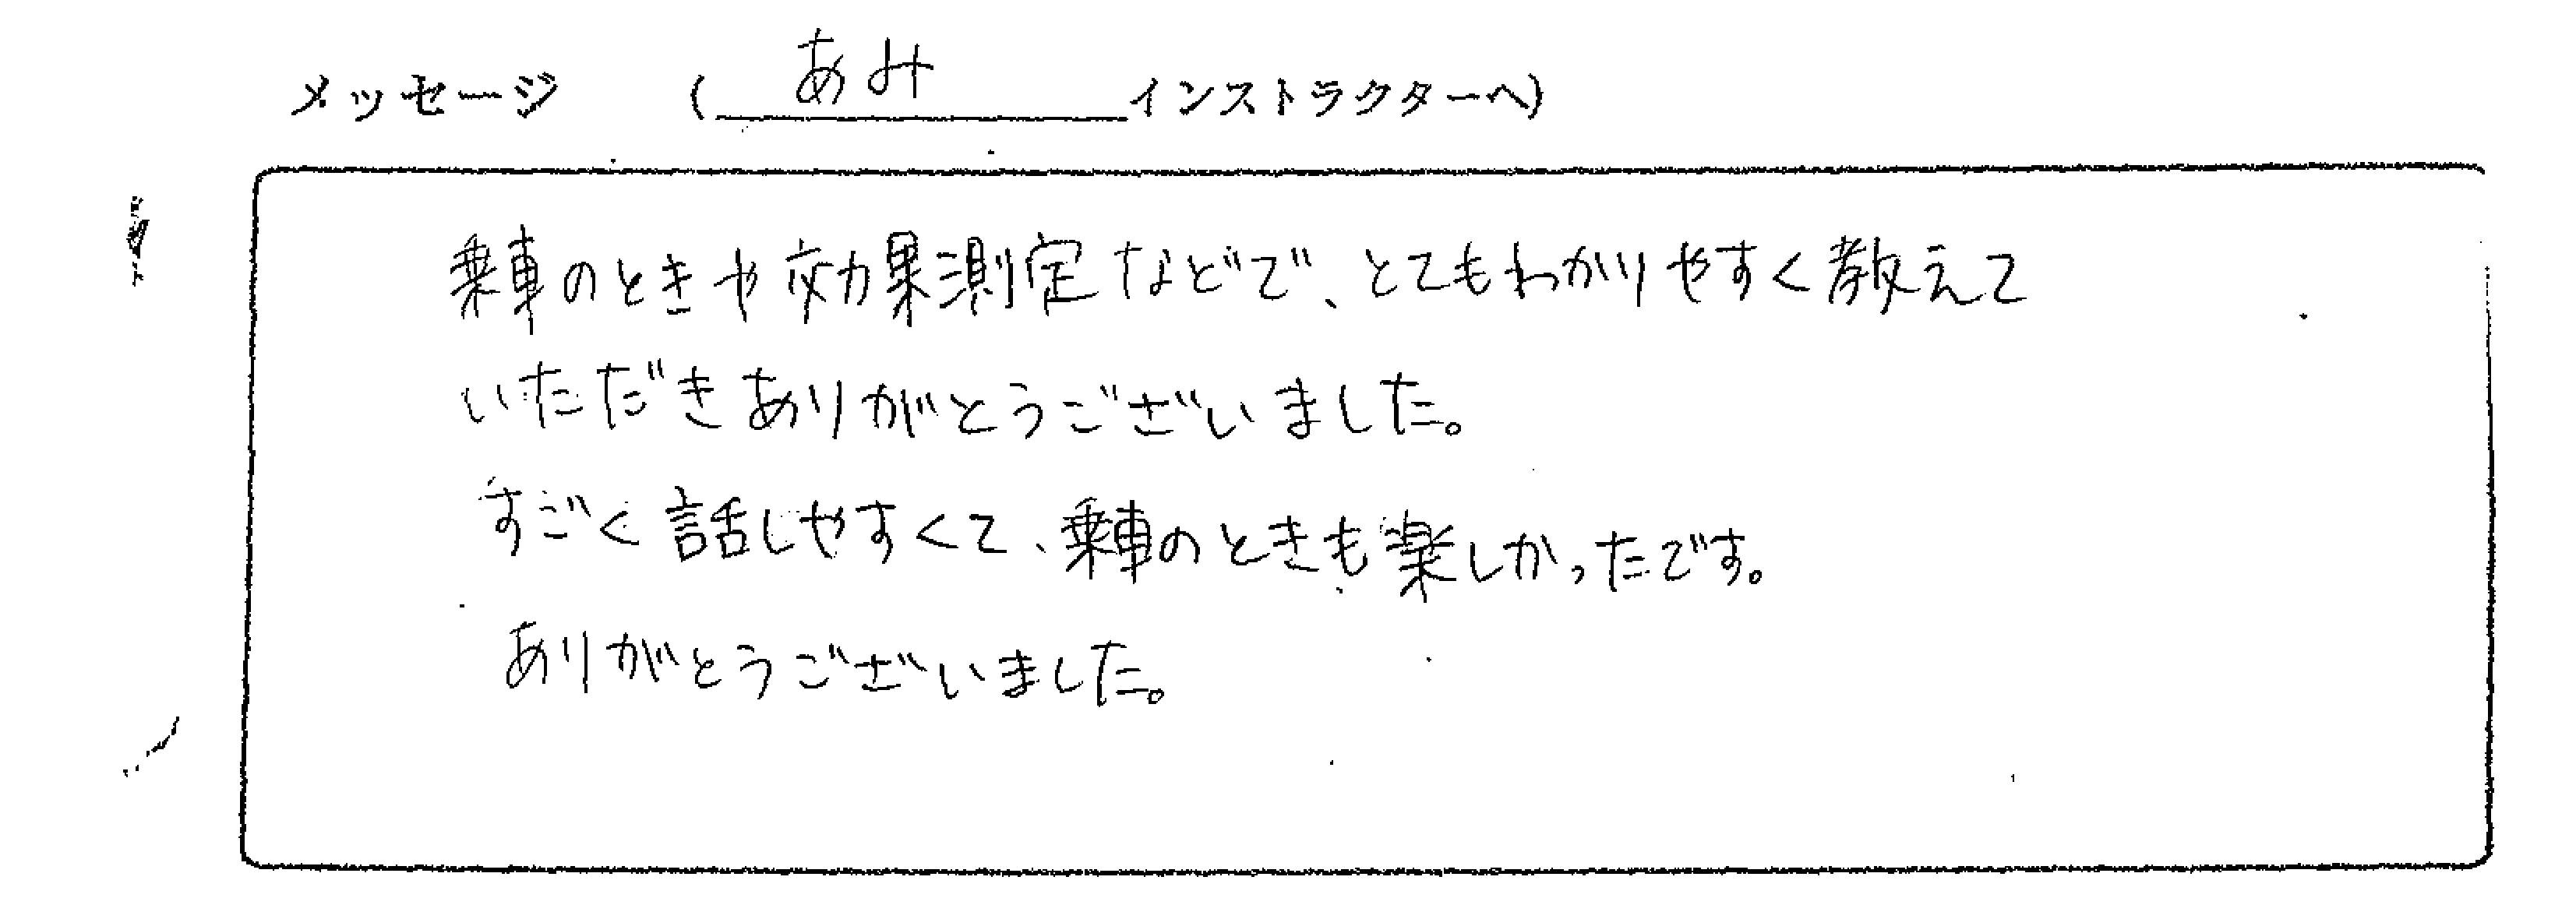 メッセージ （ あみ インストラクターへ）
乗車のときや効果測定などで、とてもわかりやすく教えて
いただきありがとうございました。
すごく話しやすくて、乗車のときも楽しかったです。
ありがとうございました。